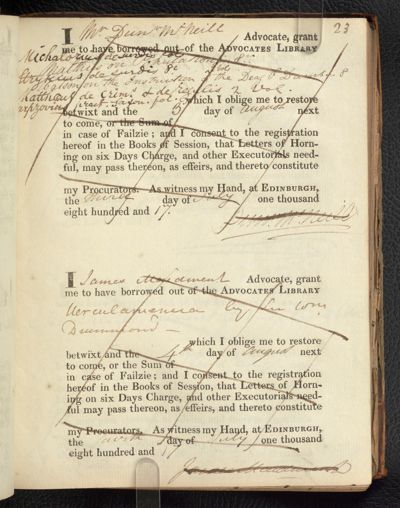 23
I Wm Dun McNeill Advocate, grant
me to have borrowed out of the ADVOCATES LIBRARY
Michalorius de
on
de surdis &c
on the Instruction of the Deaf & Dumb &
de Crim: 2 Vol.
which I oblige me to restore
betwixt and the 5 day of August next
to come, or the Sum of
in case of Failzie; and I consent to the registration
hereof in the Books of Session, that Letters of Horn-
ing on six Days Charge, and other Executorials need-
ful, may pass thereon, as effeirs, and thereto constitute
my Procurators. As witness my Hand, at EDINBURGH,
the day of July one thousand
eight hundred and 17.
McNeill
I James Maidment Advocate, grant
me to have borrowed out of the ADVOCATES LIBRARY
Herculanensia by Sir Wm
Drummond
which I oblige me to restore
betwixt and the 4th day of August next
to come, or the Sum of
in case of Failzie; and I consent to the registration
hereof in the Books of Session, that Letters of Horn-
ing on six Days Charge, and other Executorials need-
ful may pass thereon, as effeirs, and thereto constitute
my Procurators. As witness my Hand, at EDINBURGH,
the day of July one thousand
eight hundred and 17
James Maidment